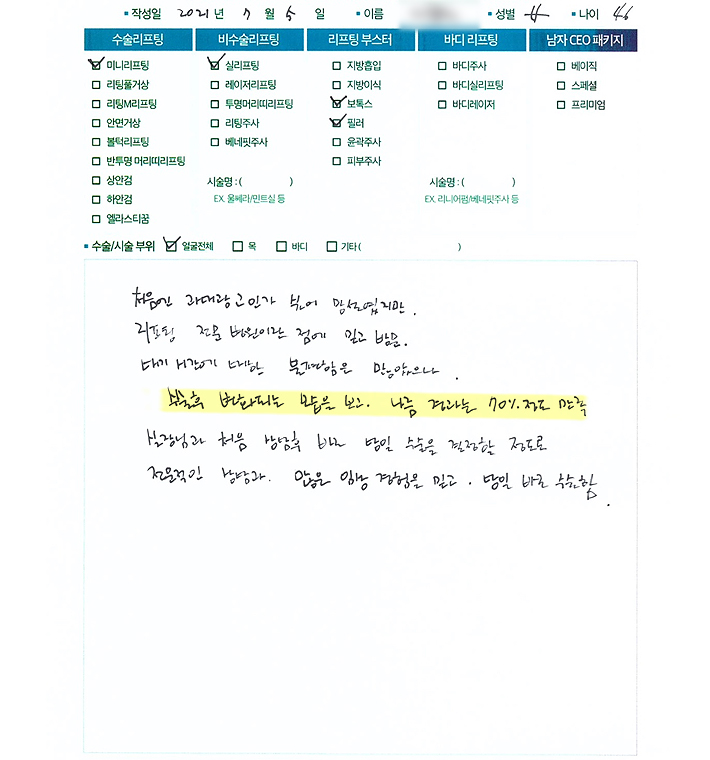 작성일 2021 년 7 월 5 일 이름 성별 나이 46
수술리프팅 비수술리프팅 리프팅 부스터 바디 리프팅 남자 CEO 패키지
미니리프팅 실리프팅 지방흡입 바디주사 베이직
리팅풀거상 레이저리프팅 지방이식 바디실리프팅 스페셜
리팅M리프팅 투명머리띠리프팅 보톡스 바디레이저 프리미엄
안면거상 리팅주사 필러
볼턱리프팅 베네핏주사 윤곽주사
반투명 머리띠리프팅 피부주사
상안검 시술명 : ( ) 시술명 : ( )
하안검 EX. 울쎄라/민트실 등 EX. 리니어펌/베네핏주사 등
엘라스티꿈
수술/시술 부위 얼굴전체 목 바디 기타 ( )
처음엔 과대광고인가 싶어 망설였지만.
리프팅 전문 병원이란 점에 믿고 방문.
대기 시간에 대한 불편함은 많았으나.
수술후 변화되는 모습을 보고. 지금 결과는 70% 정도 만족
실장님과 처음 상담후 바로 당일 수술을 결정할 정도로
전문적인 상담과. 많은 임상 경험을 믿고. 당일 바로 수술함.